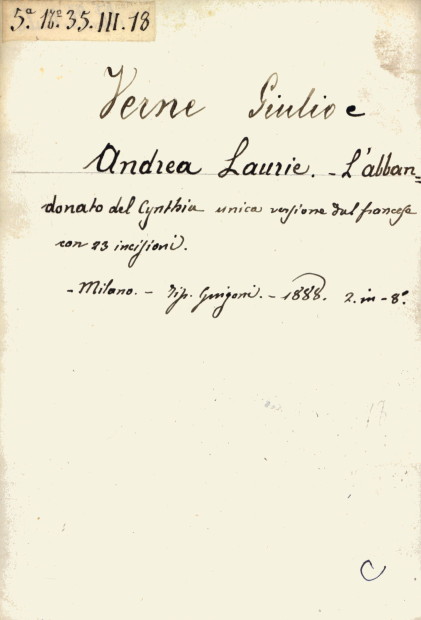 5.ª 17.º 35. III. 18
Verne Giulio e
Andrea Laurie. - L'abban=
donato del Cynthia unica versione dal francese
con 23 incisioni.
- Milano. - Tip. Guigoni. - 1888. 2. in - 8.º
C